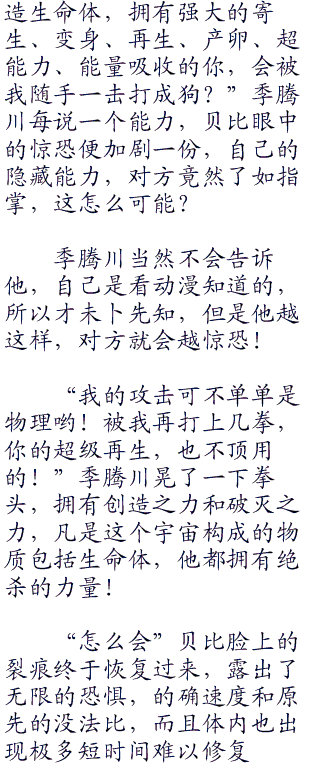 造生命体，拥有强大的寄
生、变身、再生、产卵、超
能力、能量吸收的你，会被
我随手一击打成狗？”季腾
川每说一个能力，贝比眼中
的惊恐便加剧一份，自己的
隐藏能力，对方竟然了如指
掌，这怎么可能？
季腾川当然不会告诉
他，自己是看动漫知道的，
所以才未卜先知，但是他越
这样，对方就会越惊恐！
“我的攻击可不单单是
物理哟！被我再打上几拳，
你的超级再生，也不顶用
的！”季腾川晃了一下拳
头，拥有创造之力和破灭之
力，凡是这个宇宙构成的物
质包括生命体，他都拥有绝
杀的力量！
“怎么会”贝比脸上的
裂痕终于恢复过来，露出了
无限的恐惧，的确速度和原
先的没法比，而且体内也出
现极多短时间难以修复